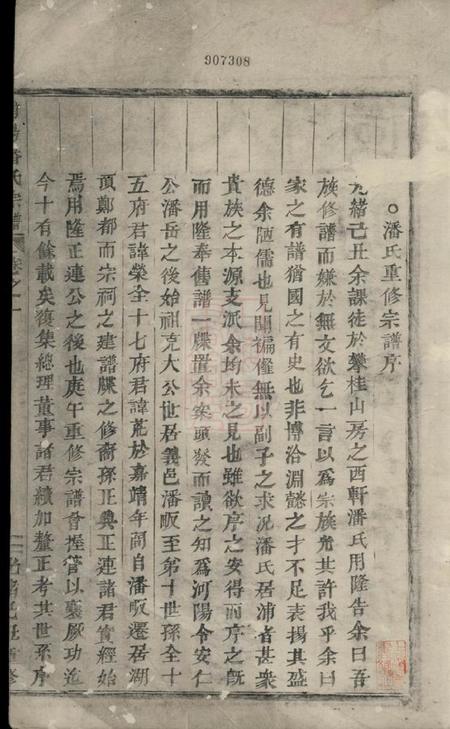 907308
潘氏重修宗譜序
光緒己丑余課徒於攀桂山房之西軒潘氏用隆告余曰吾
族修譜而嫌於無文欲乞一言以爲宗族光其許我乎余曰
家之有譜猶國之有史也非博洽淵懿之才不足表揚其盛
德余陋儒也見聞褊僅無以副子之求况潘氏居浦者甚衆
貴族之本源支派余均未之見也雖欲序之安得而序之旣
而用隆奉舊譜一牒置余案頭發而讀之知爲河陽令安仁
公潘岳之後始祖克大公世居義邑潘畈至第十世孫全十
五府君諱榮全十七府君諱茺於嘉靖年間自潘畈遷居湖
頂鄭都而宗祠之建譜牒之修裔孫正典正連諸君實經始
焉用隆正連公之後也庚午重修宗譜會握管以襄厥功迄
今十有餘載矣復集總理董事諸君續加釐正考其世系序
潘氏宗譜